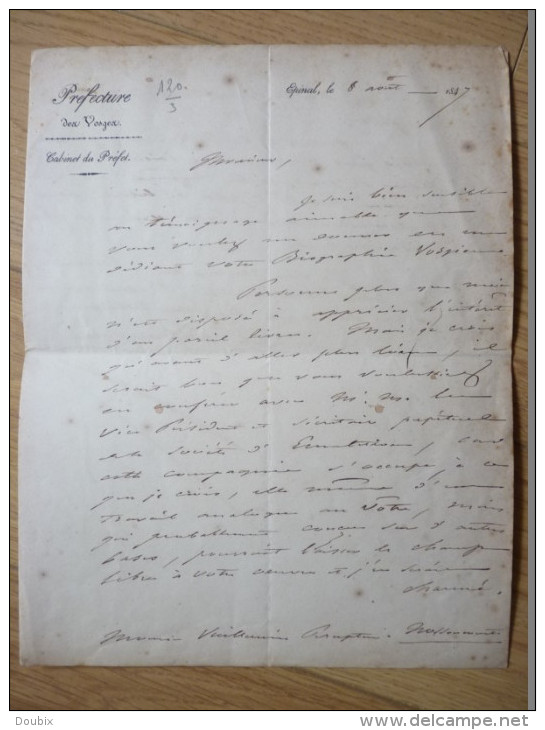 Préfecture
des Vosges.
Cabinet du Préfet.
120.
3
Epinal, le 8 août 1847
Monsieur,
Je suis bien sensible
au témoignage aimable que
vous voulez me donner en me
dédiant votre Biographie Vosgienne
Personne plus que moi
n'est disposé à apprécier l'intérêt
d'un pareil livre. Mais je crois
qu'avant d'aller plus loin, il
serait bon que vous voulussiez
en conférer avec M. M. le
Vice Président et Secrétaire perpétuel
de la Société d'Emulation, car
cette compagnie s'occupe, à ce
que je crois, elle même d'un
travail analogue au vôtre, mais
qui probablement conçu sur d'autres
bases, pourrait laisser le champ
libre à votre œuvre et j'en serais
charmé.
Monsieur Vuillemin
Doubix
www.delcampe.net